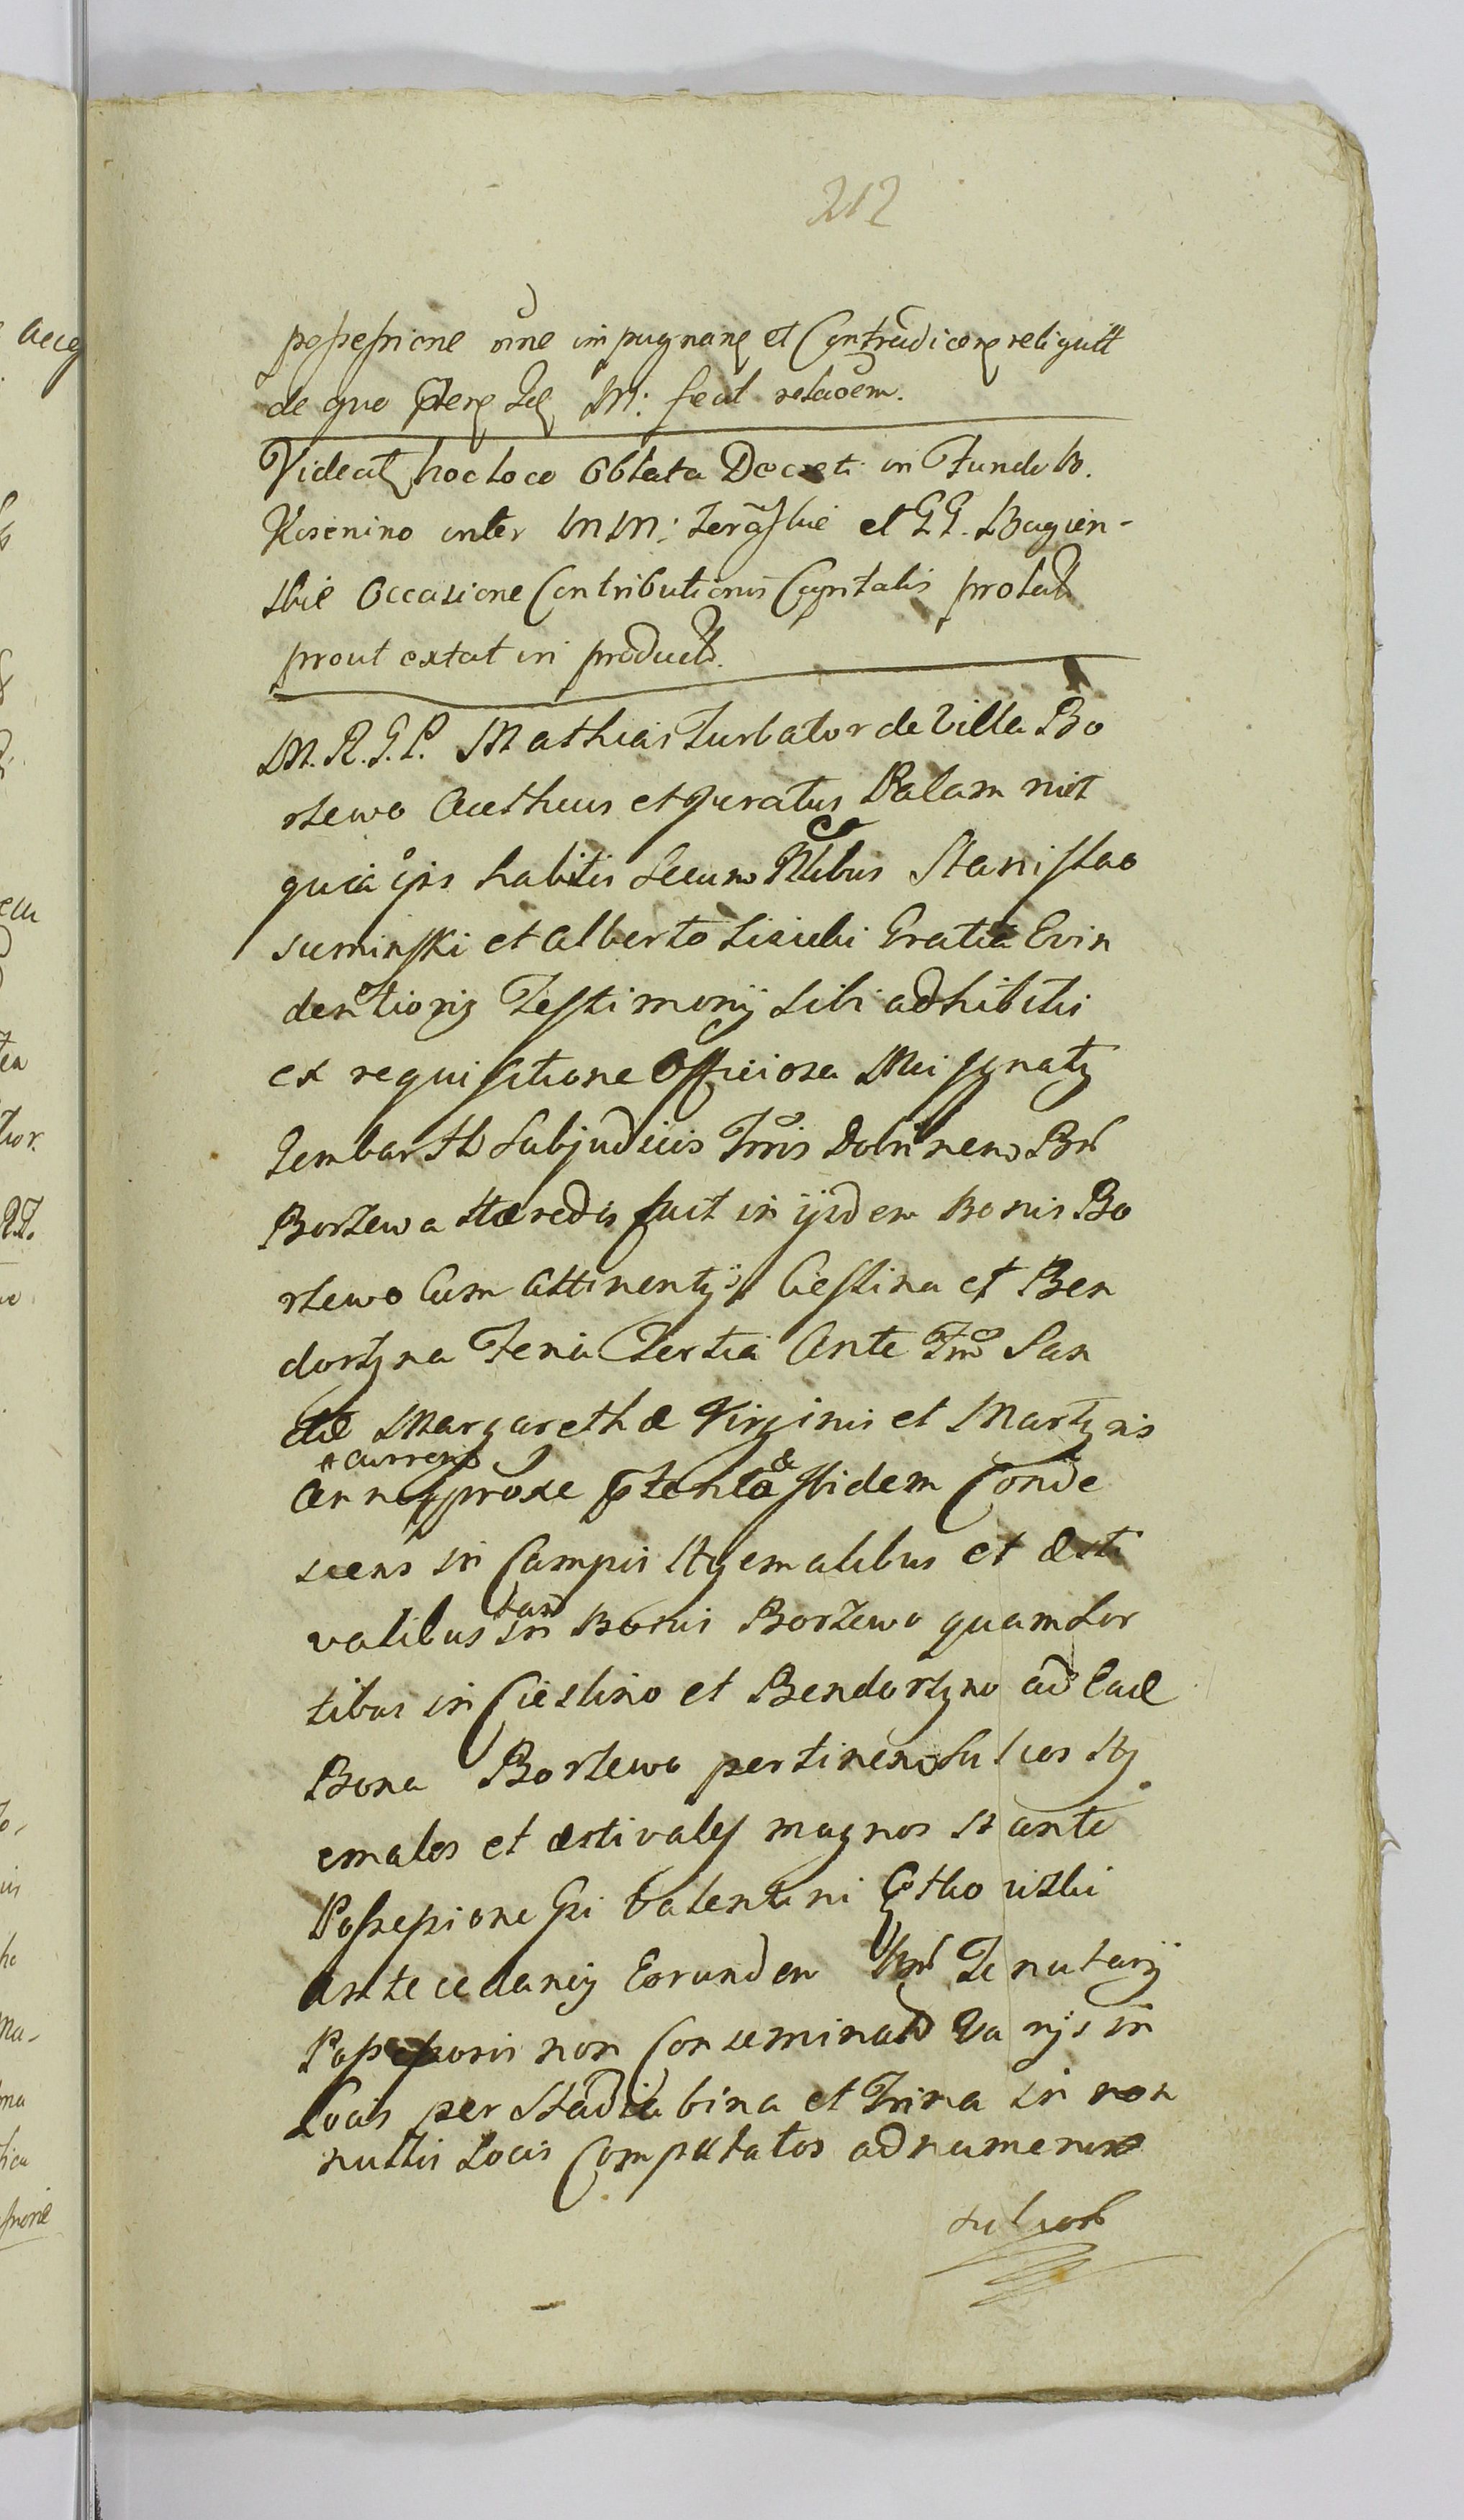 212
possessione õne impugnane et Contradicere reliquit
de quo Ptere M: fecit relaõem.
Videat hoc loco Oblata Decreti in Fundo B.
Kisinino inter MM: et GG. Bagien-
skie Occasione Contributionis Capitalis prolati
prout extat in producto.
M. R. G. P. Mathias Turbator de Villa Bo
rzewo Authus et Juratus Palam
quia ipse habitis secum Nlibus Stanislao
suminski et Alberto Lisicki Gratia Evin
dentioris Testimonij sibi adhibitis
ex requisitione Officiosa Mei Ignaty
Zembarth Subjudicis Trris Dobrinens Bnr
Borzewa Hæredis fuit in ijsdem Bonis Bo
rzewo Cum Attinentijs Ciestina et Ben
dorzyna Feria Tertia Ante Fm San
ctæ Margarethæ Virginis et Martyris
currens
Anni proxe Ptenta & Ibidem Conde
scens in Campis Hyemalibus et Æsti
valibus tam in Bonis Borzewo quam Sor
tibus in Cieslino et Bendorzyno ad Ead
Bona Borzewo pertinens Sulcos Hy
emales et æstivales magnos Stante
Possessione Gsi Valentini
Antecedaney Eorundem Bnr Tenutarij
Possessoris non Conseminatos Varijs in
Locis per Stadia bina et Trina in non
nullis Locis Computatos ad numerum
sulcos